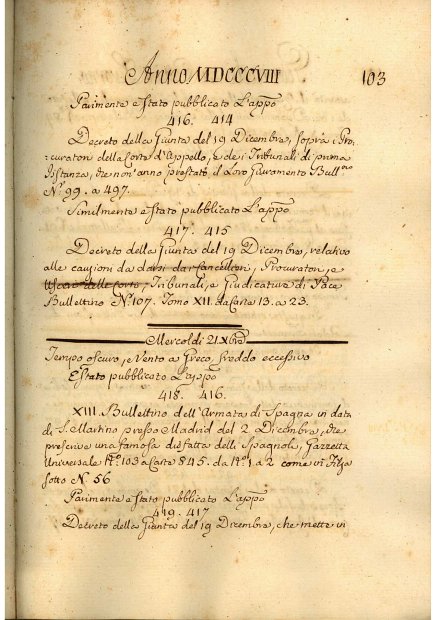 Anno MDCCCVIII 103
Parimente è stato pubblicato l'appò
416. 414
Decreto della Giunta del 19 Dicembre, sopra i Pro:
:curatori della Corte d'Appello, e dei Tribunali di prima
Istanza, che non anno prestato il Loro Giuramento Bull:ino
No. 99. a 497.
Similmente è stato pubblicato L'appò
417. 415
Decreto della Giunta del 19 Dicembre, relativo
alle cauzioni da darsi dai Cancellieri, Procuratori, e
Uscieri delle Corti, Tribunali, e Giudicature di Pace
Bullettino No. 107. Tomo XII. da Carte 13. a 23.
Mercoldì 21. Xbre
Tempo oscuro, e Vento a Greco, freddo eccessivo
È stato pubblicato L'appò
418. 416.
XIII. Bullettino dell'Armata di Spagna in data
di S. Martino presso Madrid del 2 Dicembre, che
prescrive una famosa disfatta delli Spagnoli, Gazzetta
Universale No. 103 a Carte 845. da No. 1. a 2 come in Filza
sotto N. 56
Parimente è stato pubblicato L'appò
419. 417
Decreto della Giunta del 19 Dicembre, che mette in